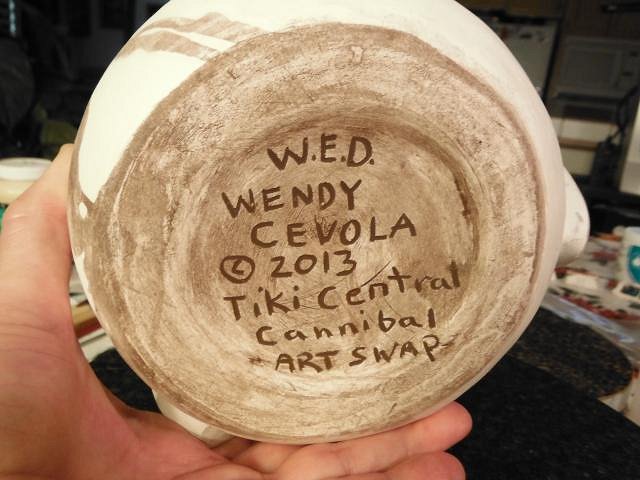 W.E.D.
WENDY
CEVOLA
© 2013
Tiki Central
Cannibal
-ART SWAP-